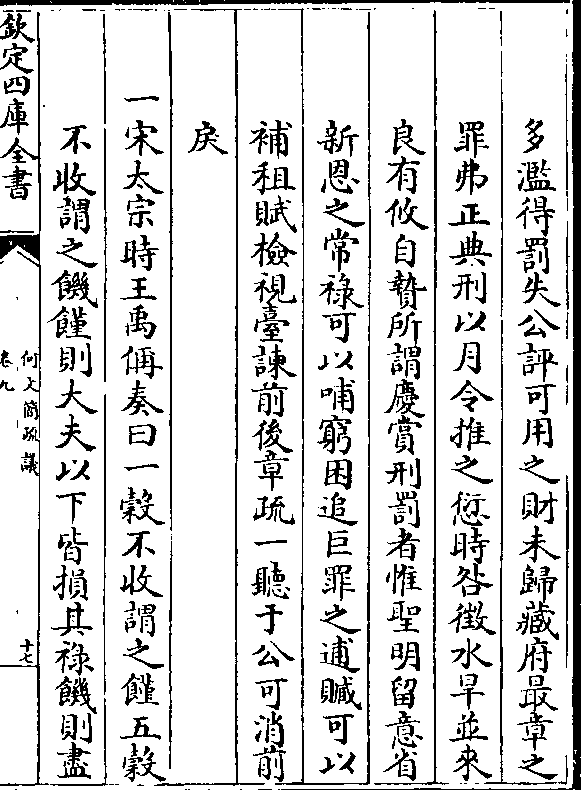 多濫得罰失公評可用之財未歸藏府最章之
罪弗正典刑以月令推之愆時咎徵水旱並來
良有攸自贄所謂慶賞刑罰者惟聖明留意省
新恩之常祿可以哺窮困追巨罪之逋贓可以
補租賦檢視臺諫前後章疏一聽于公可消前
戾
一宋太宗時王禹偁奏曰一穀不收謂之饉五穀
不收謂之饑饉則大夫以下皆損其祿饑則盡
欽定四庫全書
何文簡疏議
卷九
十七